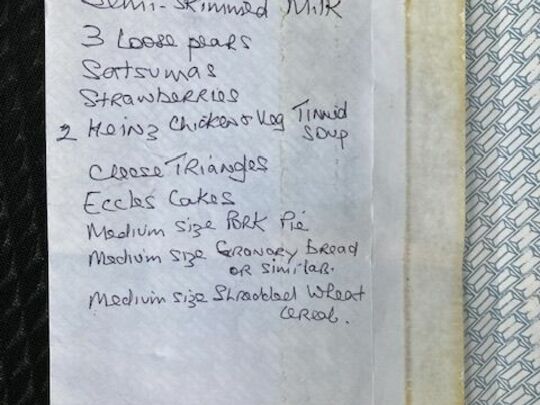 Semi-Skimmed Milk
3 Loose pears
Satsumas
Strawberries
2 Heinz Chicken & Veg Tinnid
Soup
Cheese Triangles
Eccles Cakes
Medium size Pork Pie
Medium size Granory bread
or similar.
Medium size Shredded Wheat
cereal.